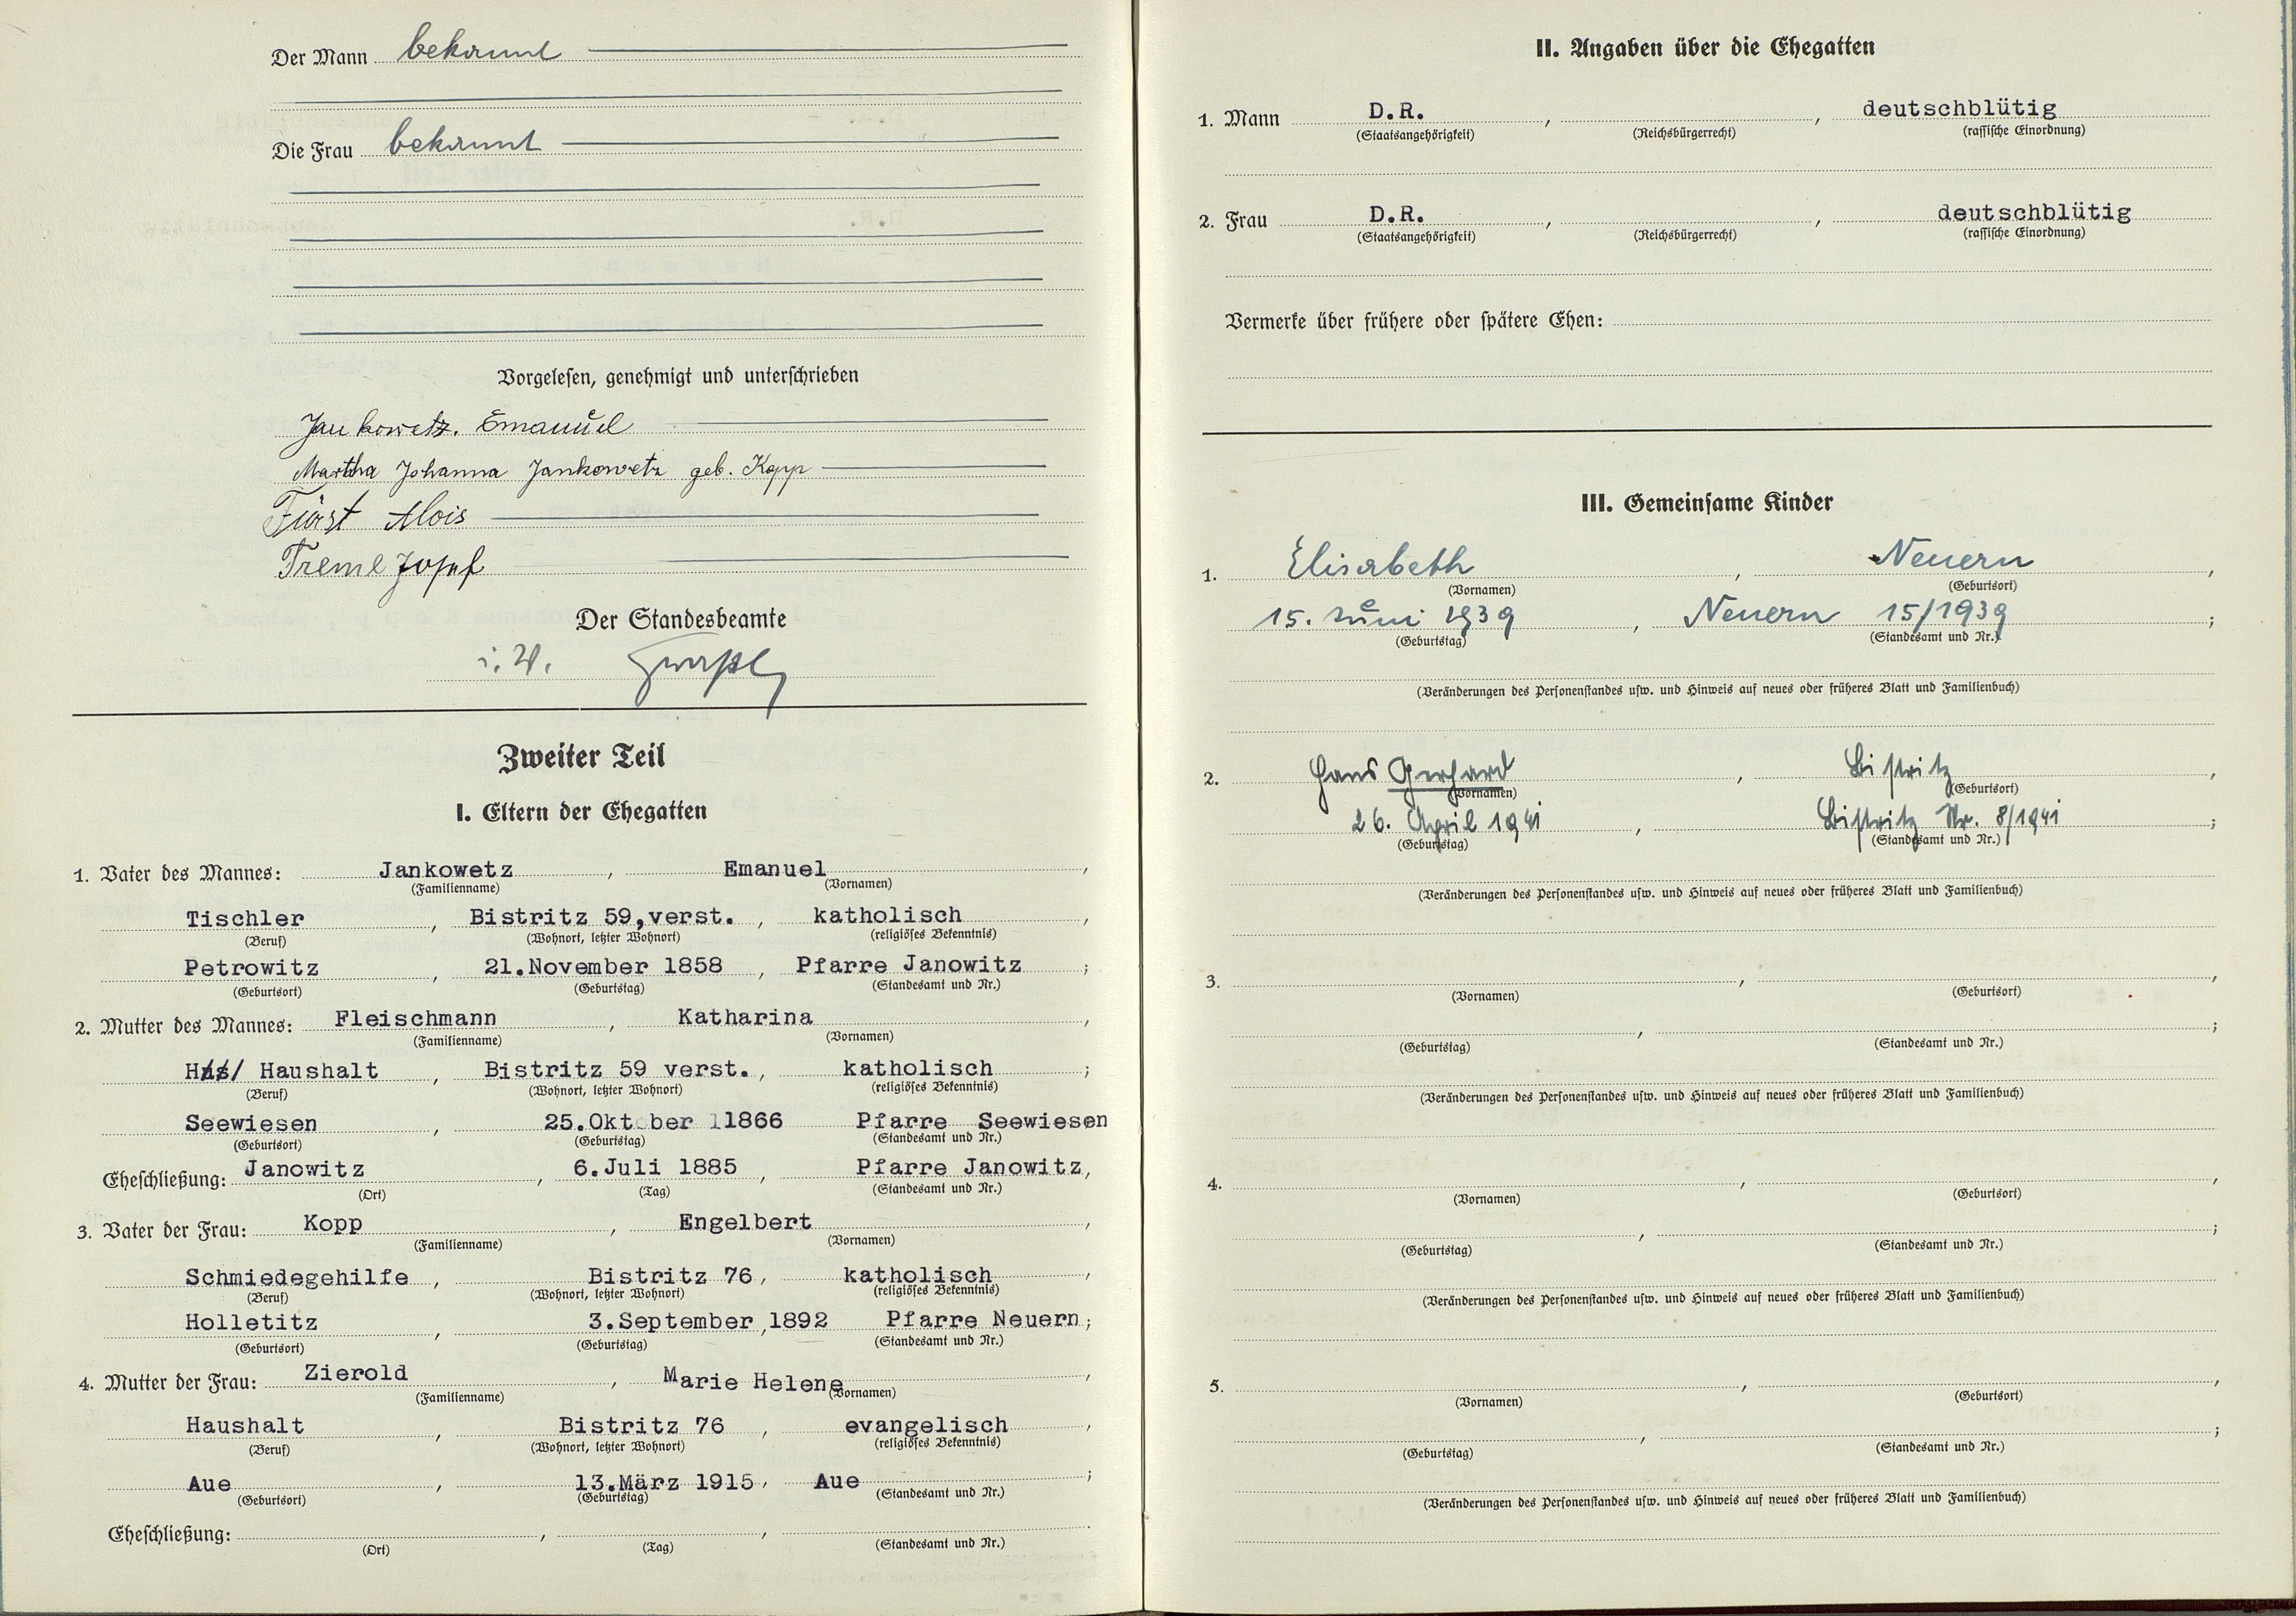 Der Mann bekannt
Die Frau bekannt
Vorgelesen, genehmigt und unterschrieben
Jankowetz. Emanuel
Martha Johanna Jankowetz geb. Kopp
Fürst Alois
Treml Josef
Der Standesbeamte
Zweiter Teil
I. Eltern der Ehegatten
1. Vater des Mannes: Jankowetz, Emanuel,
(Familienname) (Vornamen)
Tischler, Bistritz 59,verst., katholisch,
(Beruf) (Wohnort, letzter Wohnort) (religiöses Bekenntnis)
Petrowitz, 21.November 1858, Pfarre Janowitz;
(Geburtsort) (Geburtstag) (Standesamt und Nr.)
2. Mutter des Mannes: Fleischmann, Katharina,
(Familienname) (Vornamen)
Haushalt, Bistritz 59 verst., katholisch;
(Beruf) (Wohnort, letzter Wohnort) (religiöses Bekenntnis)
Seewiesen, 25.Oktober 1866 Pfarre Seewiesen
(Geburtsort) (Geburtstag) (Standesamt und Nr.)
Eheschließung: Janowitz, 6.Juli 1885, Pfarre Janowitz,
(Ort) (Tag) (Standesamt und Nr.)
3. Vater der Frau: Kopp, Engelbert,
(Familienname) (Vornamen)
Schmiedegehilfe, Bistritz 76, katholisch,
(Beruf) (Wohnort, letzter Wohnort) (religiöses Bekenntnis)
Holletitz, 3.September,1892 Pfarre Neuern;
(Geburtsort) (Geburtstag) (Standesamt und Nr.)
4. Mutter der Frau: Zierold, Marie Helene,
(Familienname) (Vornamen)
Haushalt, Bistritz 76, evangelisch,
(Beruf) (Wohnort, letzter Wohnort) (religiöses Bekenntnis)
Aue, 13.März 1915, Aue;
(Geburtsort) (Geburtstag) (Standesamt und Nr.)
Eheschließung: , ,
(Ort) (Tag) (Standesamt und Nr.)
II. Angaben über die Ehegatten
1. Mann D.R., , deutschblütig
(Staatsangehörigkeit) (Reichsbürgerrecht) (rassische Einordnung)
2. Frau D.R., , deutschblütig
(Staatsangehörigkeit) (Reichsbürgerrecht) (rassische Einordnung)
Vermerke über frühere oder spätere Ehen:
III. Gemeinsame Kinder
1. Elisabeth, Neuern,
(Vornamen) (Geburtsort)
15. Juni 1939, Neuern 15/1939;
(Geburtstag) (Standesamt und Nr.)
(Veränderungen des Personenstandes usw. und Hinweis auf neues oder früheres Blatt und Familienbuch)
2. Hans Gerhard, Bistritz,
(Vornamen) (Geburtsort)
26. April 1941, Bistritz Nr. 8/1941;
(Geburtstag) (Standesamt und Nr.)
(Veränderungen des Personenstandes usw. und Hinweis auf neues oder früheres Blatt und Familienbuch)
3. , ,
(Vornamen) (Geburtsort)
, ;
(Geburtstag) (Standesamt und Nr.)
(Veränderungen des Personenstandes usw. und Hinweis auf neues oder früheres Blatt und Familienbuch)
4. , ,
(Vornamen) (Geburtsort)
, ;
(Geburtstag) (Standesamt und Nr.)
(Veränderungen des Personenstandes usw. und Hinweis auf neues oder früheres Blatt und Familienbuch)
5. , ,
(Vornamen) (Geburtsort)
, ;
(Geburtstag) (Standesamt und Nr.)
(Veränderungen des Personenstandes usw. und Hinweis auf neues oder früheres Blatt und Familienbuch)